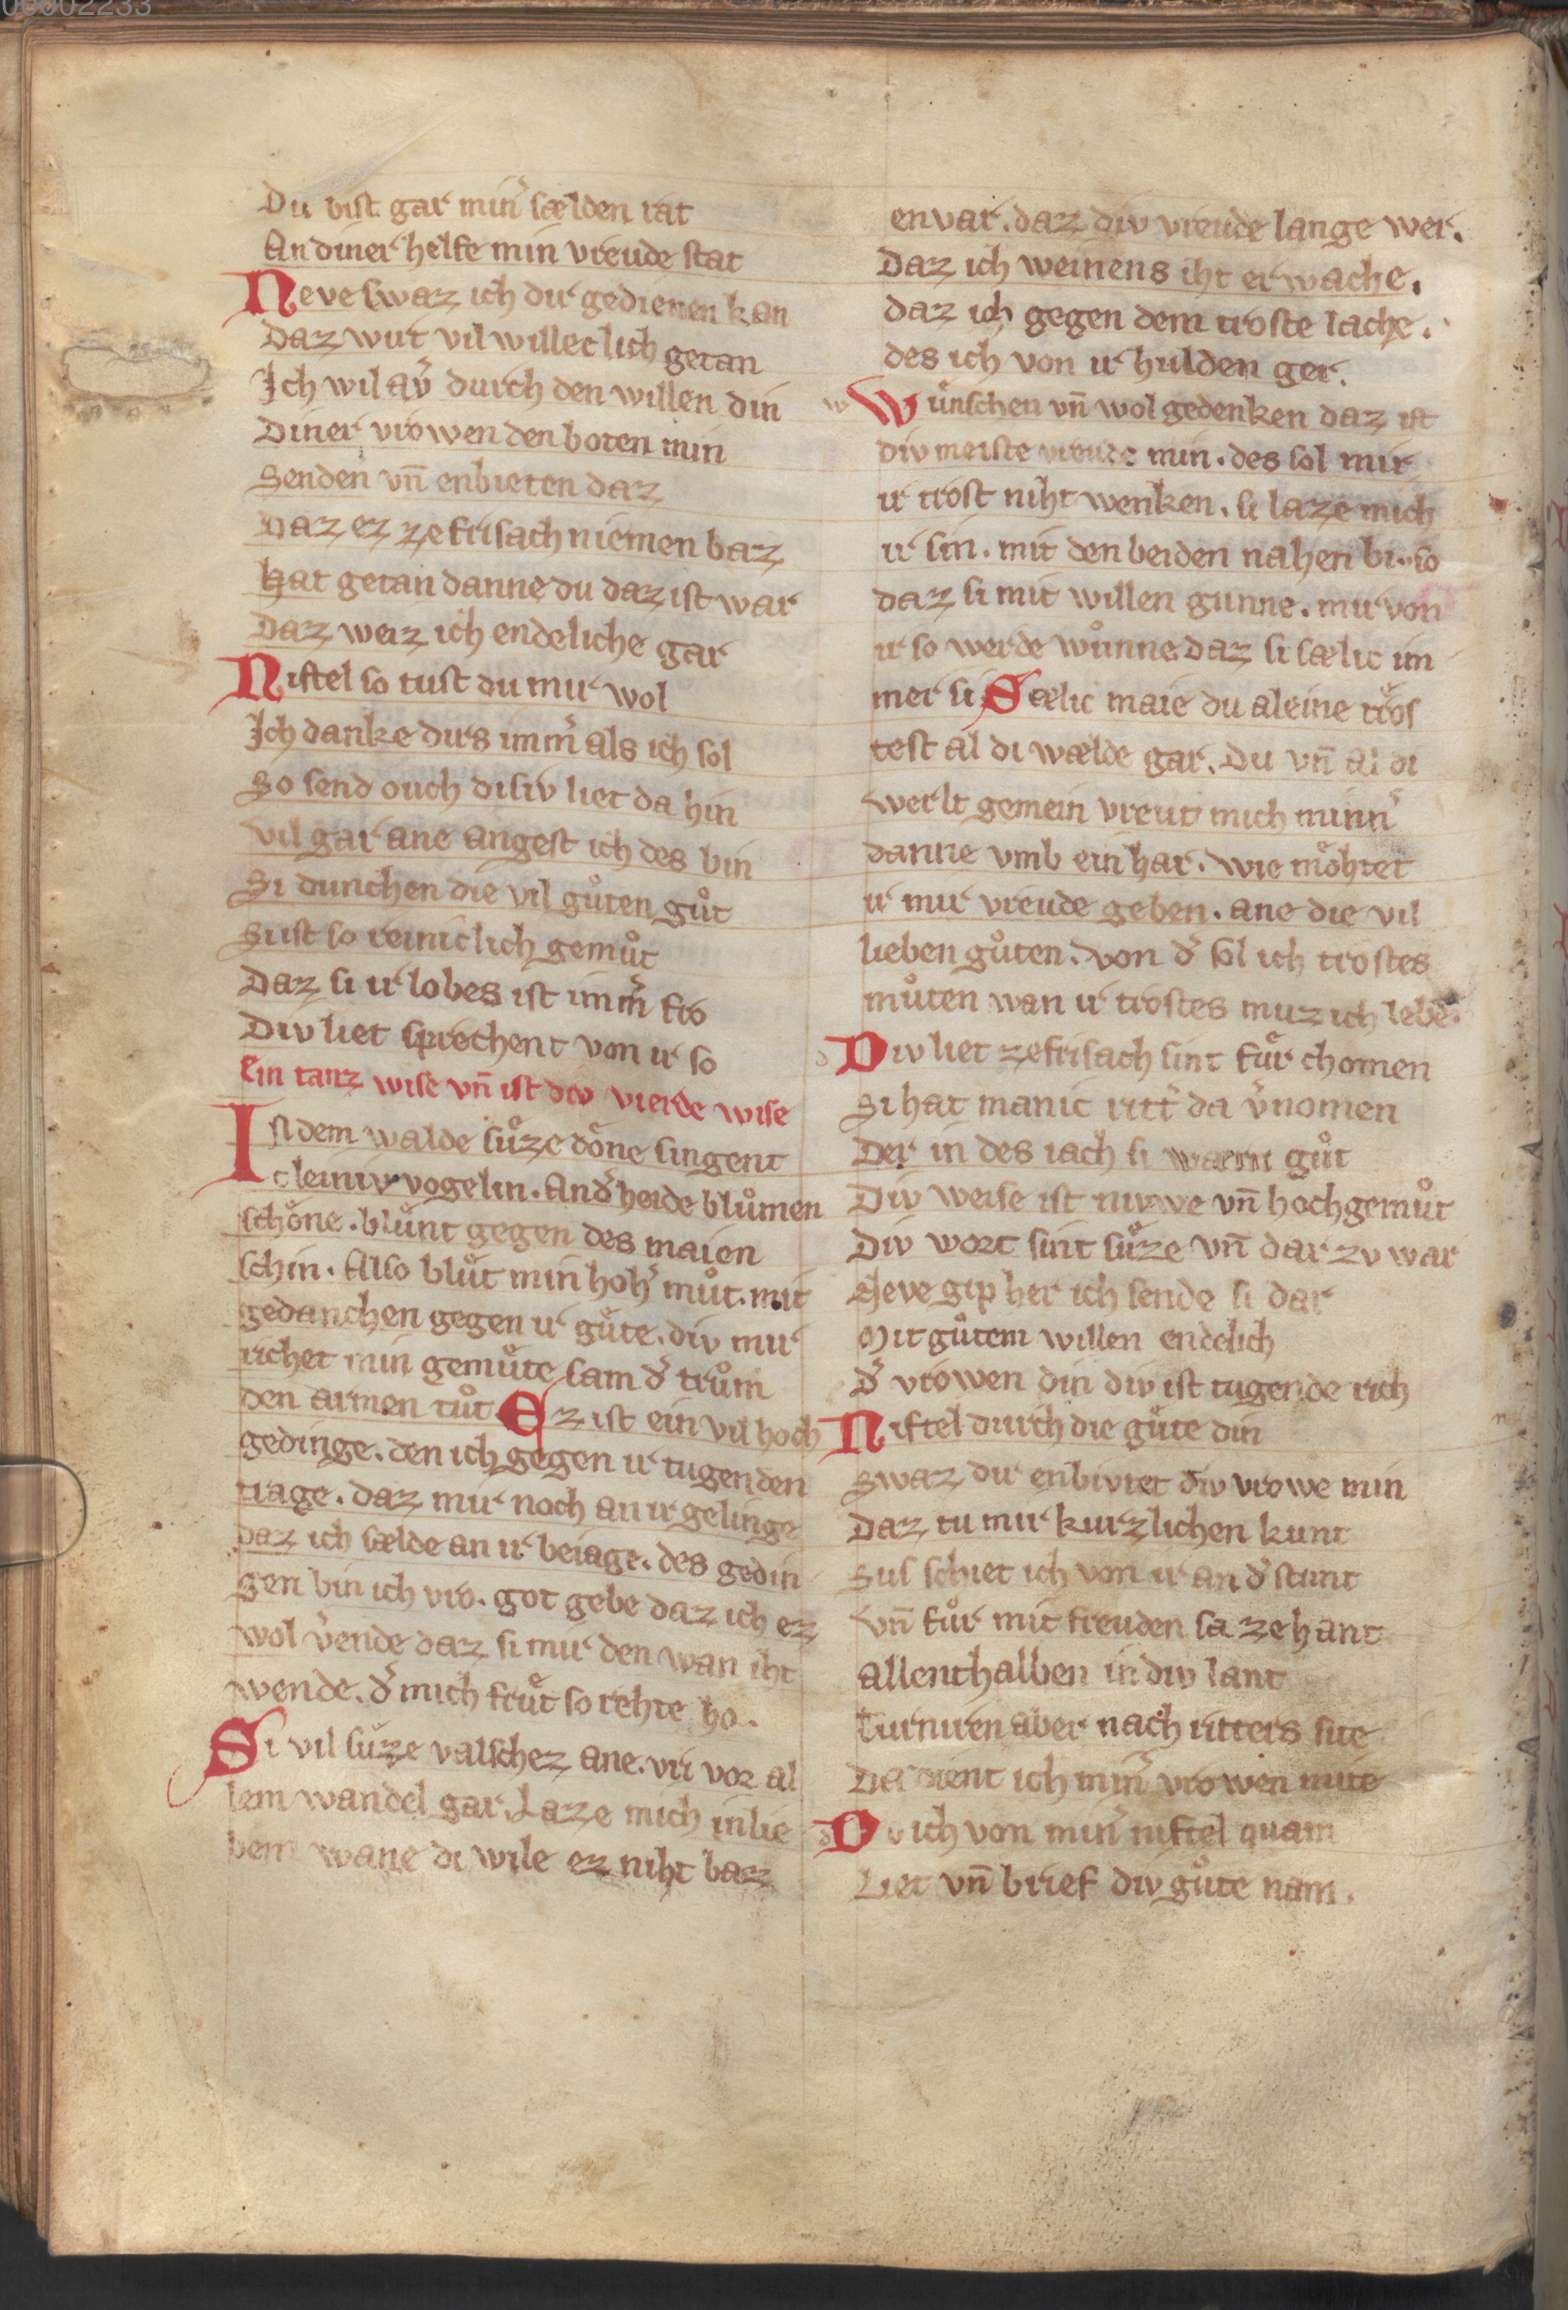 00002233
Du bist gar min͛ sælden rat
An diner helfe min vreude stat
Neve swaz ich dir gedienen kan
Daz wirt vil willeclich getan
Ich wil av͛ durch den willen din
Diner vrowen den boten min
Senden vn̄ enbieten daz
Daz ez ze frisach niemen baz
Hat getan danne du daz ist war
Daz weiz ich endeliche gar
Niftel so tust du mir wol
Ich danke dirs imm͛ als ich sol
So send ouch disiv liet da hin
Vil gar ane angest ich des bin
Si dunchen die vil gůten gůt
Si ist so reiniclich gemůt
Daz si ir lobes ist imm͛ fro
Div liet sprechent von ir so
Ein tanz wise vn̄ ist div vierde wise
In dem walde sůze dône singent
cleiniv vogelin. An d͛ heide blůmen
schône. blůnt gegen des maien
schin. Also blůt min hoh͛ můt. mit
gedanchen gegen ir gůte. div mir
richet min gemůte sam d͛ trům
den armen tůt Ez ist ein vil hoch
gedinge. den ich gegen ir tugenden
trage. daz mir noch an ir gelinge
daz ich sælde an ir beiage. des gedin
gen bin ich vro. got gebe daz ich ez
wol v͛ende daz si mir den wan iht
wende. d͛ mich frůt so rehte ho.
Si vil sůze valschez ane. vri vor al
lem wandel gar. Laze mich in lie
bem wane di wile ez niht baz
envar. daz div vreude lange wer.
Daz ich weinens iht erwache.
daz ich gegen dem troste lache.
des ich von ir hulden ger.
w Wůnschen vn̄ wol gedenken daz ist
div meiste vreude min. des sol mir
ir trost niht wenken. si laze mich
ir sin. mit den beiden nahen bi. so
daz si mit willen gunne. mir von
ir so werde wůnne daz si sælic im
mer si Sælic maie du aleine trôs
test al di wælde gar. Du vn̄ al di
werlt gemein vreut mich minn͛
danne vmb ein har. wie môhtet
ir mir vreude geben. ane die vil
lieben gůten. von d͛ sol ich trostes
můten wan ir trostes muz ich lebē.
d Div liet ze frisach sint fůr chomen
Si hat manic ritt͛ da v͛nomen
Der in des iach si waern gůt
Div weise ist niwe vn̄ hochgemůt
Div wort sint sůze vn̄ dar zv war
Neve gip her ich sende si dar
Mit gůtem willen endelich
d͛ vrowen din div ist tugende rich
n Niftel durch die gůte din
Swaz dir enbivtet div vrowe min
Daz tu mir kurzlichen kunt
Sus schiet ich von ir an d͛ stunt
Vn̄ fůr mit freuden sa ze hant
allenthalben in div lant
Turniren aber nach ritters site
Da dient ich min͛ vrowen mite
d Do ich von min͛ niftel quam
Liet vn̄ brief div gůte nam.